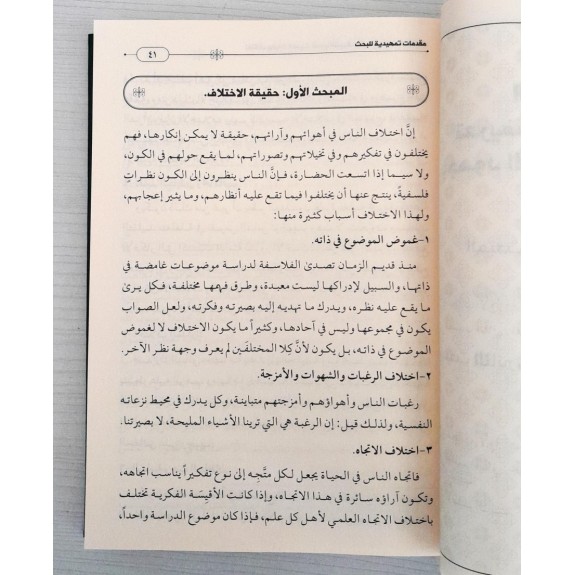 مقدمات تمهيدية للبحث
٤١
المبحث الأول: حقيقة الاختلاف.
إنَّ اختلاف الناس في أهوائهم وآرائهم، حقيقة لا يمكن إنكارها، فهم
يختلفون في تفكيرهم وفي تخيلاتهم وتصوراتهم، لما يقع حولهم في الكون،
ولا سيما إذا اتسعت الحضارة، فإنَّ الناس ينظرون إلى الكون نظراتٍ
فلسفيةً، ينتج عنها أن يختلفوا فيما تقع عليه أنظارهم، وما يثير إعجابهم،
ولهذا الاختلاف أسباب كثيرة منها:
١-غموض الموضوع في ذاته.
منذ قديم الزمان تصدىٰ الفلاسفة لدراسة موضوعات غامضة في
ذاتها، والسبيل لإدراكها ليست معبدة، وطرق فهمها مختلفة، فكل يرىٰ
ما يقع عليه نظره، ويدرك ما تهديه إليه بصيرته وفكرته، ولعل الصواب
يكون في مجموعها وليس في آحادها، وكثيراً ما يكون الاختلاف لا لغموض
الموضوع في ذاته، بل يكون لأنَّ كِلا المختلفَين لم يعرف وجهة نظر الآخر.
٢-اختلاف الرغبات والشهوات والأمزجة.
رغبات الناس وأهواؤهم وأمزجتهم متباينة، وكل يدرك في محيط نزعاته
النفسية، ولذلك قيل: إن الرغبة هي التي ترينا الأشياء المليحة، لا بصيرتنا.
٣-اختلاف الاتجاه.
فاتجاه الناس في الحياة يجعل لكل متَّجِه إلى نوع تفكيراً يناسب اتجاهه،
وتكون آراؤه سائرة في هذا الاتجاه، وإذا كانت الأقيِسَة الفكرية تختلف
باختلاف الاتجاه العلمي لأهل كل علم، فإذا كان موضوع الدراسة واحداً،